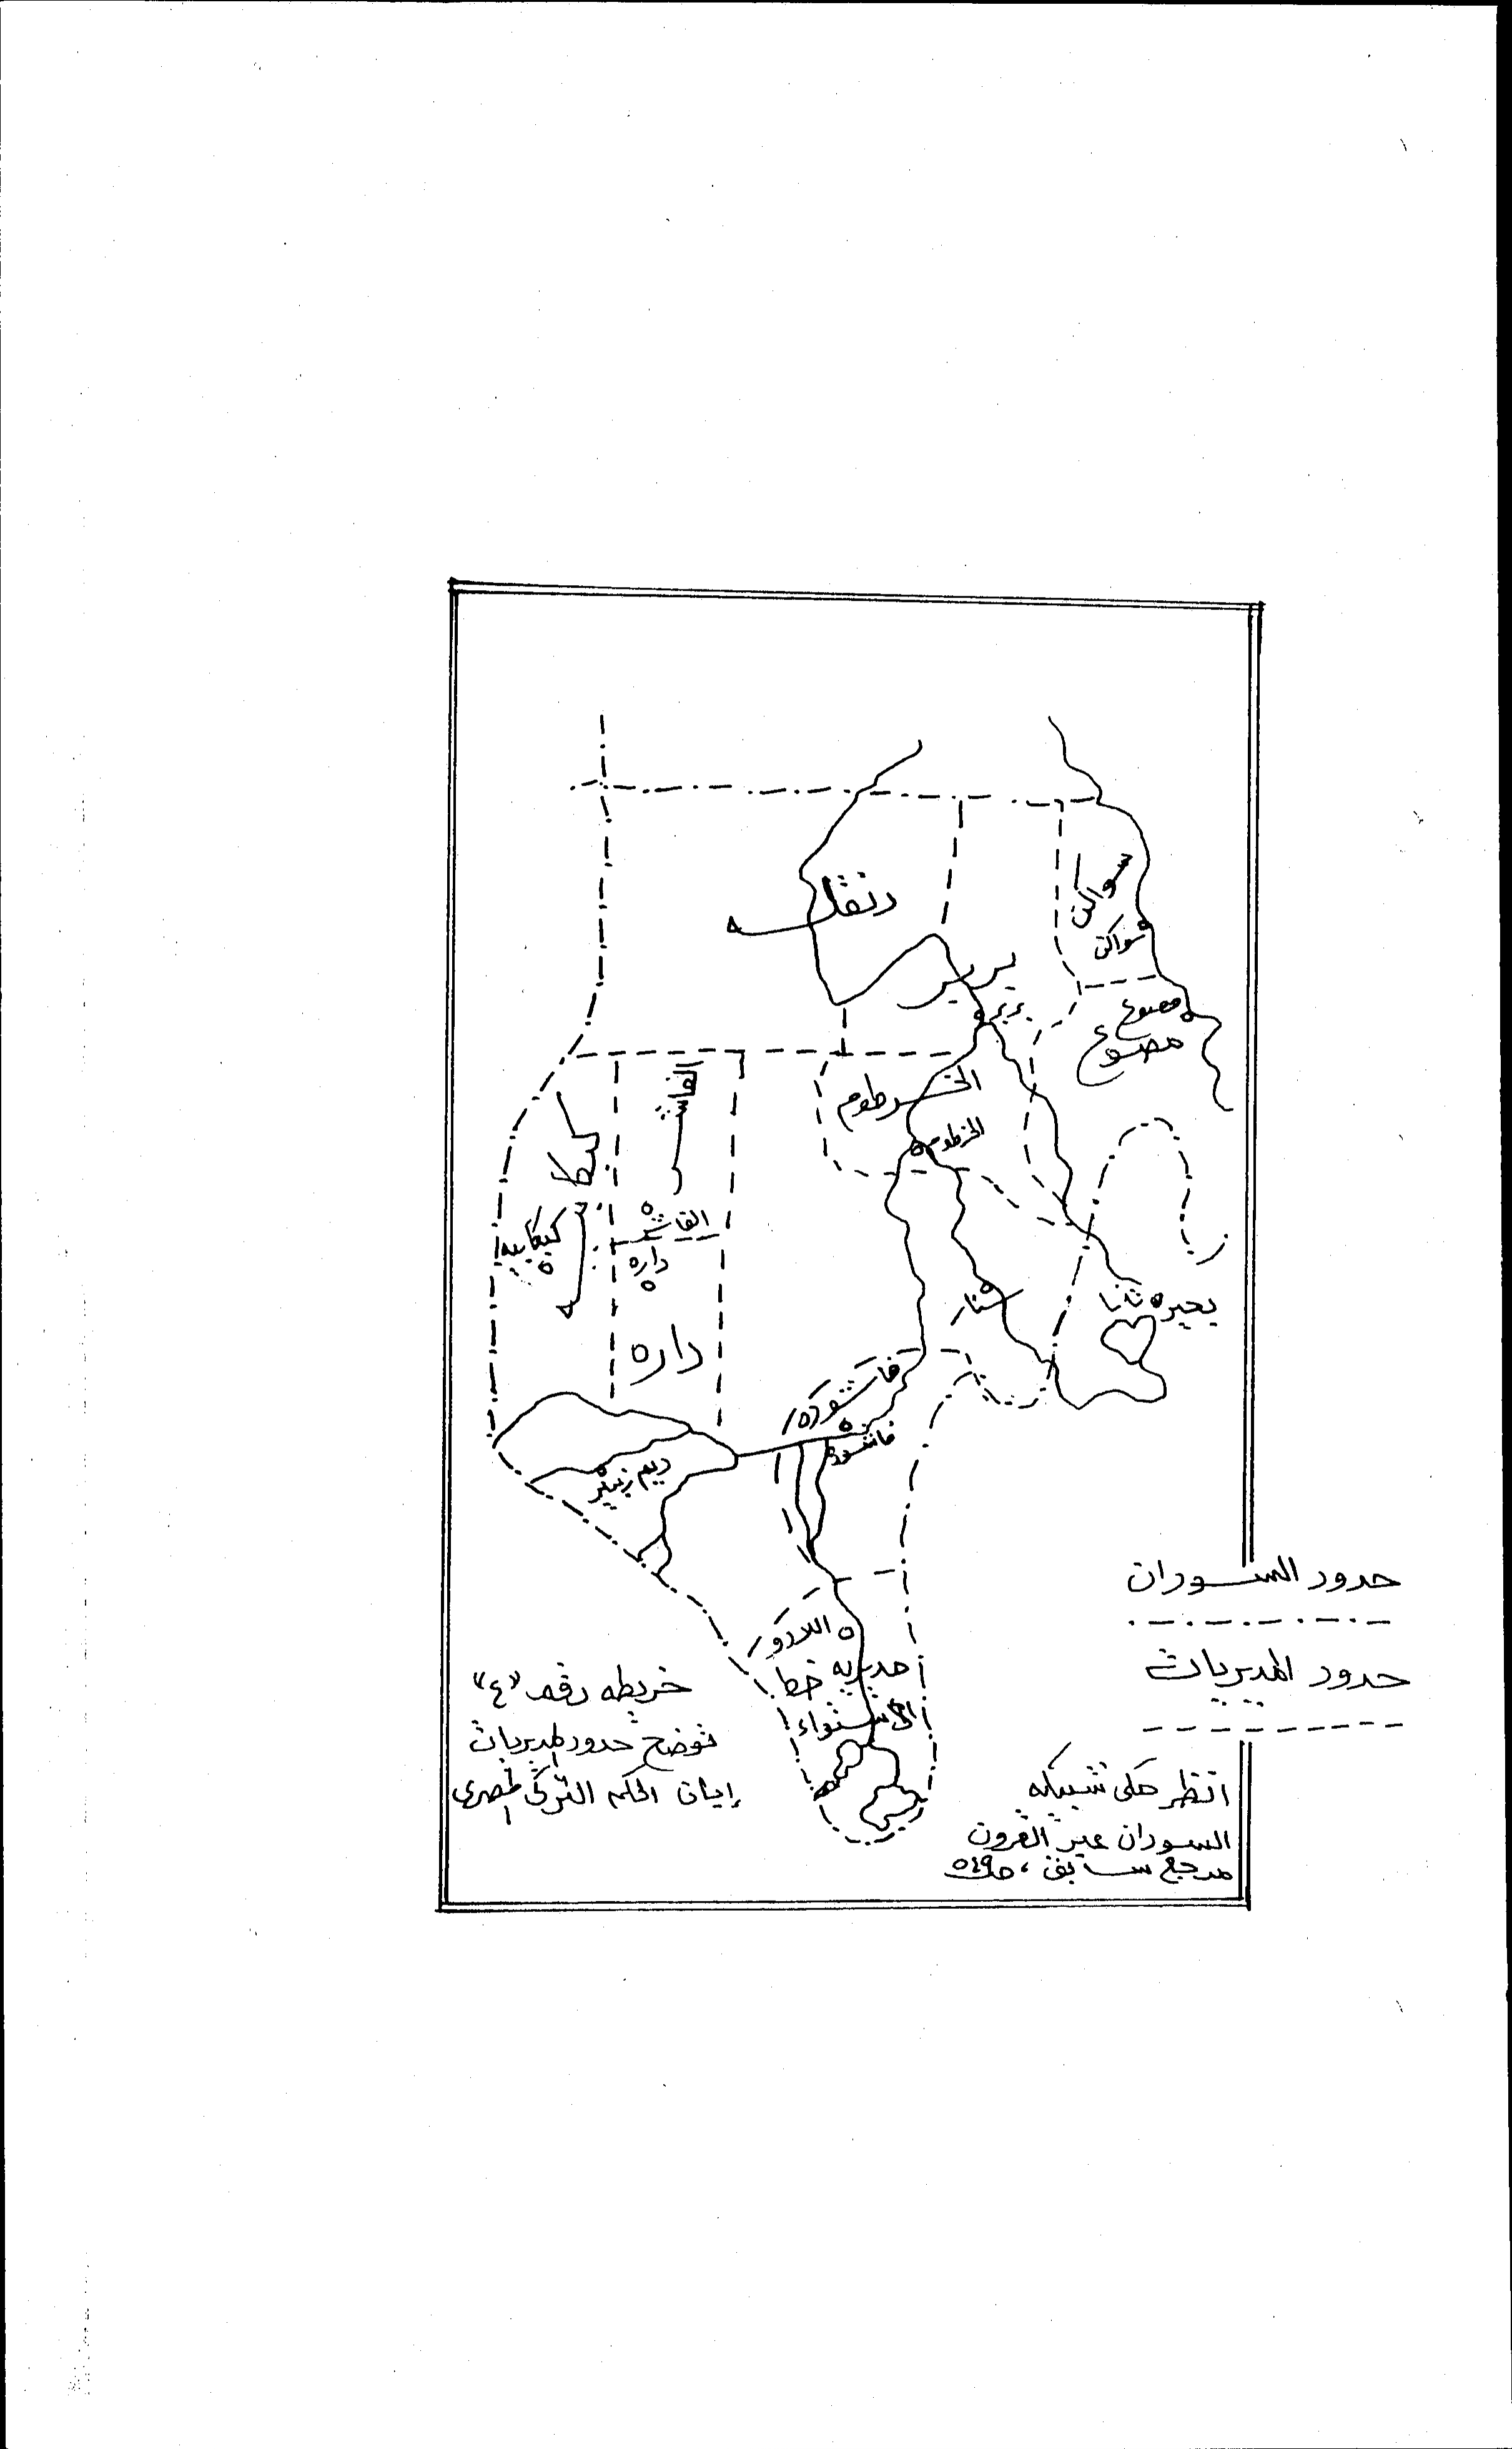 سواكن
دنقله
سواكن
بربر
بربر
مصوع
مصوع
الخرطوم
الفاشر
الخرطوم
كبكابيه
الفاشر
داره
سنار
بحيره تانا
داره
فاشوده
فاشوده
ديم زبير
اللادو
مديريه خط
الاستواء
حدود الســودان
حدود المديريات
خريطه رقم "٤"
توضح حدود المديريات
إبان الحكم التركي المصرى
انظر مكى شبيكه
السودان عبر القرون
مرجع سابق، ص٥٤٩